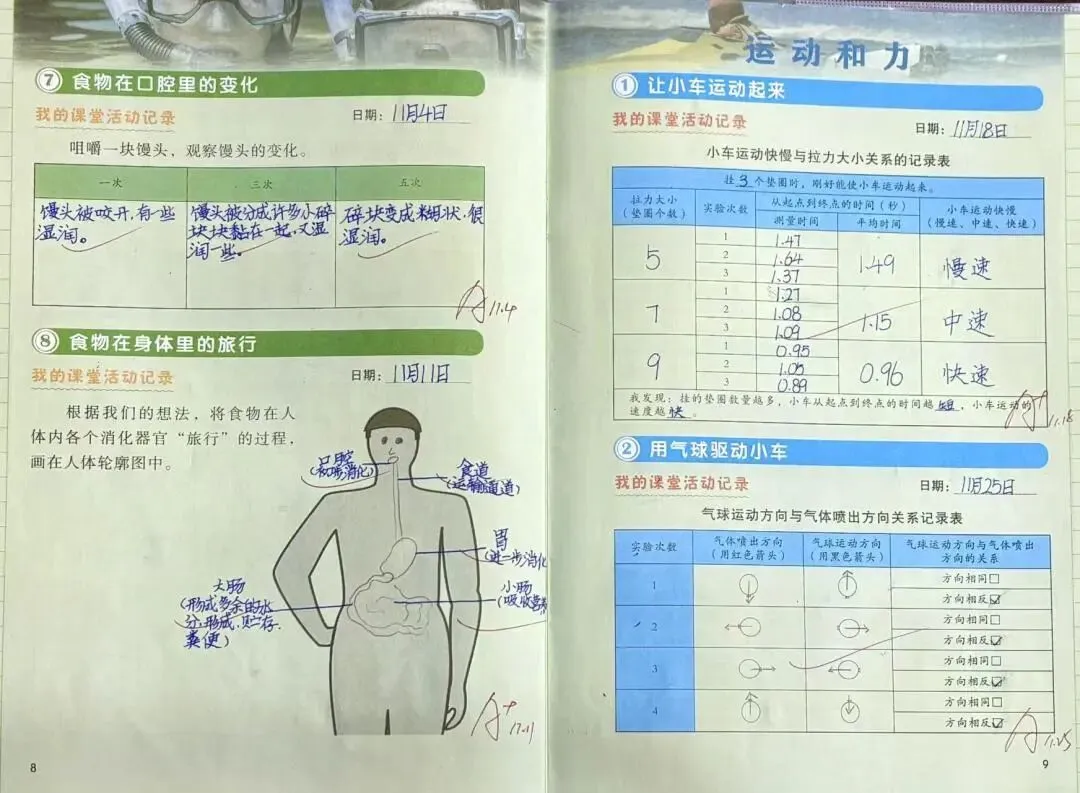 ⑦ 食物在口腔里的变化
我的课堂活动记录
日期：11月4日
咀嚼一块馒头，观察馒头的变化。
一次
三次
五次
馒头被咬开，有一些
湿润。
馒头被分成许多小碎
块，块黏在一起，又湿
润一些。
碎块变成糊状，很
湿润。
A 11.4
⑧ 食物在身体里的旅行
我的课堂活动记录
日期：11月11日
根据我们的想法，将食物在人
体内各个消化器官“旅行”的过程，
画在人体轮廓图中。
口腔
(初步消化)
食道
(运输通道)
胃
(进一步消化
大肠
(形成多余的水
分，形成，贮存，
粪便)
小肠
(吸收营养
A+ 11.11
8
运动和力
① 让小车运动起来
我的课堂活动记录
日期：11月18日
小车运动快慢与拉力大小关系的记录表
挂3个垫圈时，刚好能使小车运动起来。
拉力大小
（垫圈个数）
实验次数
从起点到终点的时间（秒）
测量时间
平均时间
小车运动快慢
（慢速、中速、快速）
5
1 1.47
2 1.64
3 1.37
1.49
慢速
7
1 1.27
2 1.08
3 1.09
1.15
中速
9
1 0.95
2 1.05
3 0.89
0.96
快速
我发现：挂的垫圈数量越多，小车从起点到终点的时间越短，小车运动的
速度越快。
A+ 11.18
② 用气球驱动小车
我的课堂活动记录
日期：11月25日
气球运动方向与气体喷出方向关系记录表
实验次数
气体喷出方向
（用红色箭头）
气球运动方向
（用黑色箭头）
气球运动方向与气体喷出
方向的关系
1
方向相同□
方向相反☑
2
方向相同□
方向相反☑
3
方向相同□
方向相反☑
4
方向相同□
方向相反☑
A 11.25
9